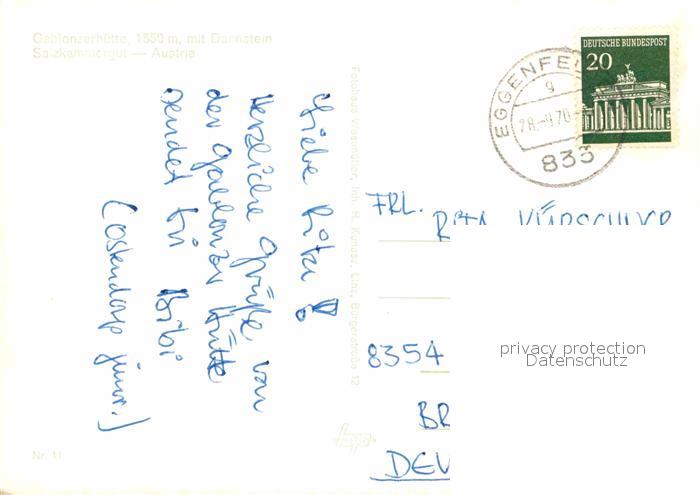 Gablonzerhütte, 1550 m, mit Donnstein
Salzkammergut — Austria
Liebe Rita!
Herzliche Grüße von
der Gablonzer Hütte
sendet Dir Bibi
(Ostendorp junr.)
Fotohaus Wiesmüller, Inh. H. Kunasz, Linz, Bürgerstraße 12
Nr. 11
DEUTSCHE BUNDESPOST
20
EGGENFEL
g
28.-9.70
833
FRL.
8354
BR
DEU
privacy protection
Datenschutz